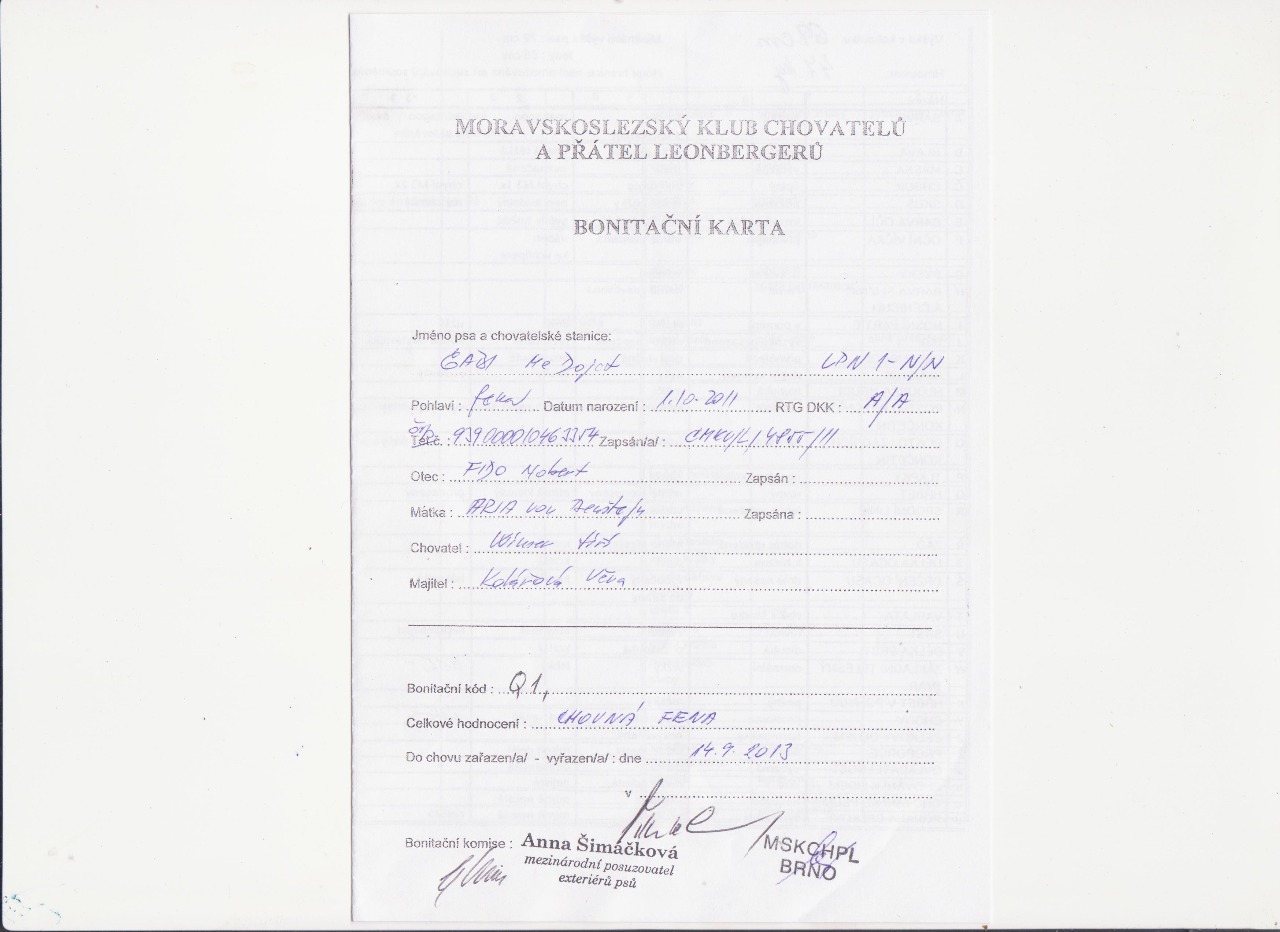 MORAVSKOSLEZSKÝ KLUB CHOVATELŮ
A PŘÁTEL LEONBERGERŮ
BONITAČNÍ KARTA
Jméno psa a chovatelské stanice:
LPN 1 - N/N
Pohlaví : fena Datum narození : 1.10.2011 RTG DKK : A/A
čip. Tet.č. : Zapsán/a/ : CMKU/L/
Otec : FIDO Zapsán :
Mátka : ARIA von Zapsána :
Chovatel :
Majitel : Kolářová Věra
Bonitační kód : Q1,
Celkové hodnocení : CHOVNÁ FENA
Do chovu zařazen/a/ - vyřazen/a/ : dne 14.9.2013
v
Bonitační komise : Anna Šimáčková
mezinárodní posuzovatel
exteriérů psů
MSKCHPL
BRNO